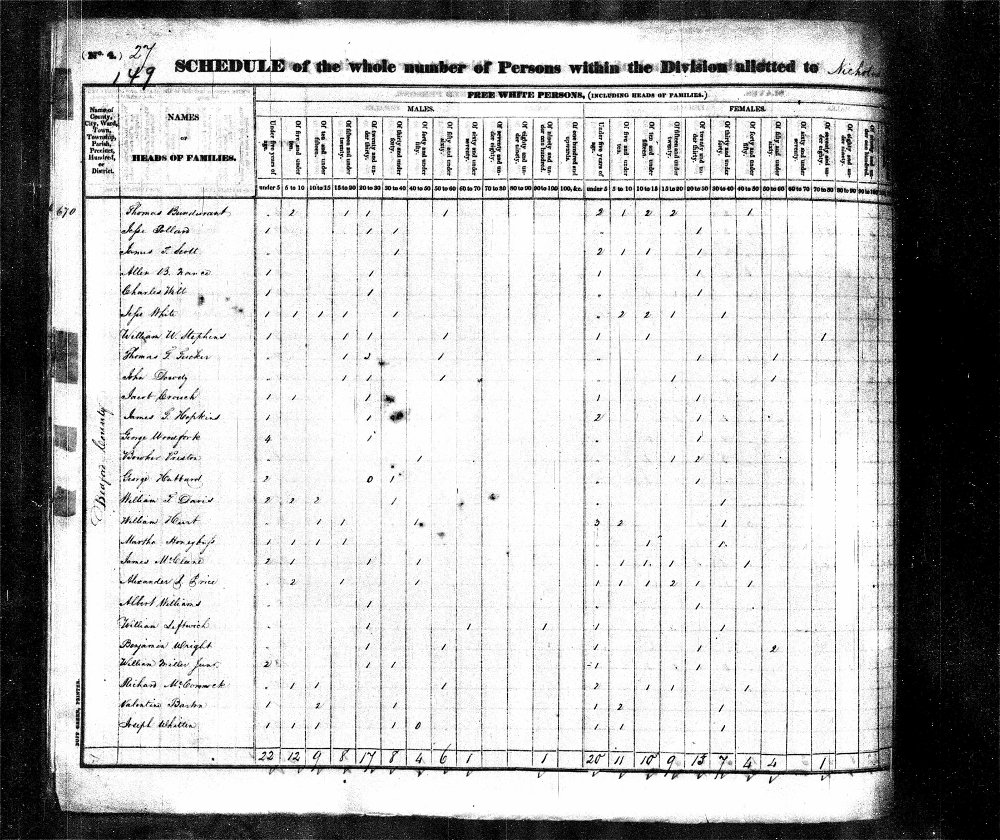 (No. 4.) 27
149
SCHEDULE of the whole number of Persons within the Division allotted to
FREE WHITE PERSONS, (INCLUDING HEADS OF FAMILIES.)
MALES. FEMALES.
Name of County, City, Ward, Town, Township, Parish, Precinct, Hundred, or District.
NAMES
OF
HEADS OF FAMILIES.
Under five years of age. Of five and under ten. Of ten and under fifteen. Of fifteen and under twenty. Of twenty and under thirty. Of thirty and under forty. Of forty and under fifty. Of fifty and under sixty. Of sixty and under seventy. Of seventy and under eighty. Of eighty and under ninety. Of ninety and under one hundred. Of one hundred and upwards. Under five years of age. Of five and under ten. Of ten and under fifteen. Of fifteen and under twenty. Of twenty and under thirty. Of thirty and under forty. Of forty and under fifty. Of fifty and under sixty. Of sixty and under seventy. Of seventy and under eighty. Of eighty and under ninety. Of ninety and under one hundred.
under 5 5 to 10 10 to 15 15 to 20 20 to 30 30 to 40 40 to 50 50 to 60 60 to 70 70 to 80 80 to 90 90 to 100 100, &c. under 5 5 to 10 10 to 15 15 to 20 20 to 30 30 to 40 40 to 50 50 to 60 60 to 70 70 to 80 80 to 90 90 to 100
670
Bedford County
Thomas 2 1 1 1 2 1 2 2 1
Jesse Pollard 1 1 1 1
James T. Scott 1 2 1 1 1
Allen B. Nance 1 1 1 1
Charles Hill 1 1 1
Jesse White 1 1 1 1 1 2 2 1 1
William W. Stephens 1 1 1 1 1 1 1
Thomas Tucker 1 2 1 1 1
John Dowdy 1 1 1 1 1
Jacob Crouch 1 1 1 1 1
James Hopkins 1 1 2 1
George Woodfork 4 1 1
Bowker Preston 1 1 2
George Hubbard 2 0 1 1
William T. Davis 2 2 2 1 1
William Hurt 1 1 1 3 2 1
Martha 1 1 1 1 1 1
James 2 1 1 1 1 1 1 1
Alexander Price 2 1 1 1 1 1 2 1 1
Albert Williams 1 1
William Leftwich 1 1 1 1 1
Benjamin Wright 1 1 1 1 2
William Miller Junr. 2 1 1 1 1
Richard 1 1 1 2 1 1 1
Valentine 1 2 1 1 2 1
Joseph Whitten 1 1 1 1 0 1 1 1
22 12 9 8 17 8 4 6 1 1 20 11 10 9 13 7 4 4 1
DUFF GREEN, PRINTER.